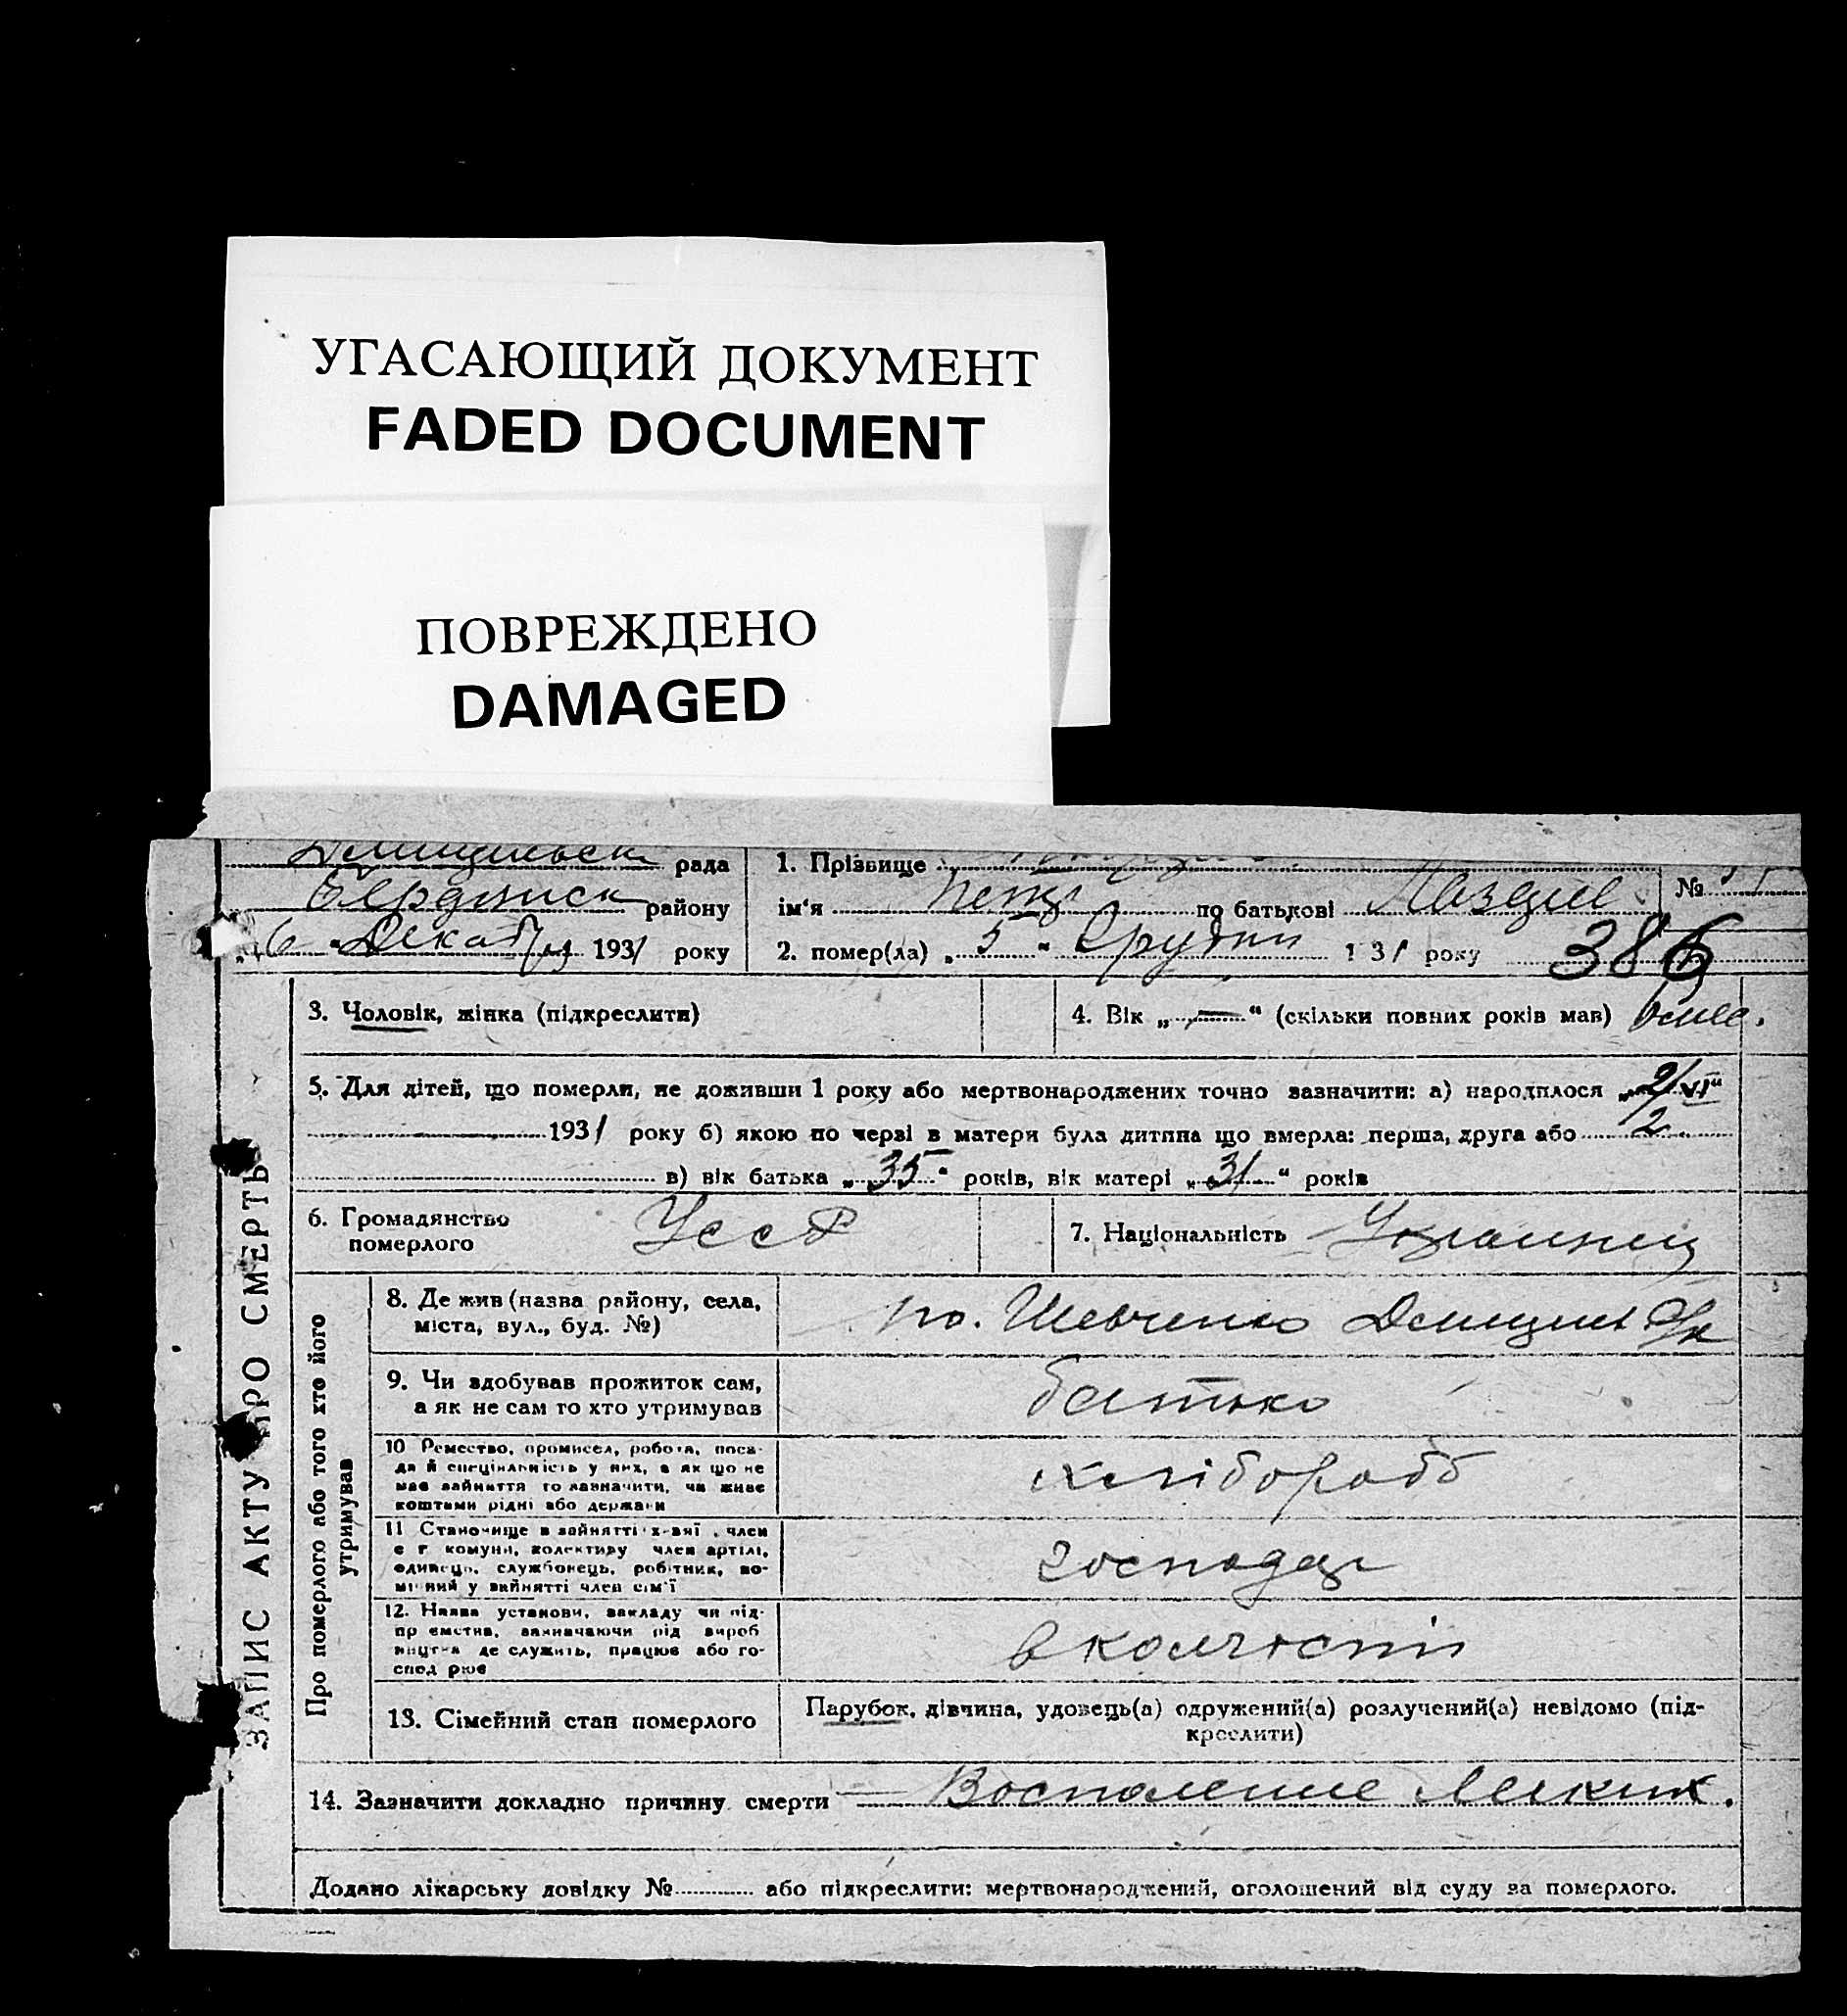 УГАСАЮЩИЙ ДОКУМЕНТ
FADED DOCUMENT
ПОВРЕЖДЕНО
DAMAGED
рада
району
Декабря 1931 року
1. Прізвище
ім‘я Петр по батькові №
2. помер(ла) „ 5 “ Грудня 1 31 року 386
ЗАПИС АКТУ ПРО СМЕРТЬ
3. Чоловік, жінка (підкреслити)
4. Вік „ — “ (скільки повних років мав) 6 мес.
5. Для дітей, що померли, не доживши 1 року або мертвонароджених точно зазначити: а) народилося „ 2/VI “
1931 року б) якою по черзі в матери була дитина що вмерла: перша, друга або 2
в) вік батька „ 35 “ років, вік матері „ 31 “ років
6. Громадянство
померлого УССР
7. Національність Украинец
Про померлого або того хто його
утримував
8. Де жив (назва району, села,
міста, вул., буд. №)
Шевченко
9. Чи здобував прожиток сам,
а як не сам то хто утримував
батько
10 Ремество, промисел, робота, поса-
да й спеціяльність у них, а як що не
має зайняття то зазначити, чи живе
коштами рідні або держави
хлібороб
11 Становище в зайнятті член
комуни, колективу член артілі,
одинець, службовець, робітник, по-
член сім‘ї
господар
12. Назва установи, закладу чи під-
зазначаючи рід вироб
де служить, працює або го-
в
13. Сімейний стан померлого
Парубок, дівчина, удовець(а) одружений(а) розлучений(а) невідомо (під-
креслити)
14. Зазначити докладно причину смерти Воспаление Легких.
Додано лікарську довідку № або підкреслити: мертвонароджений, оголошений від суду за померлого.